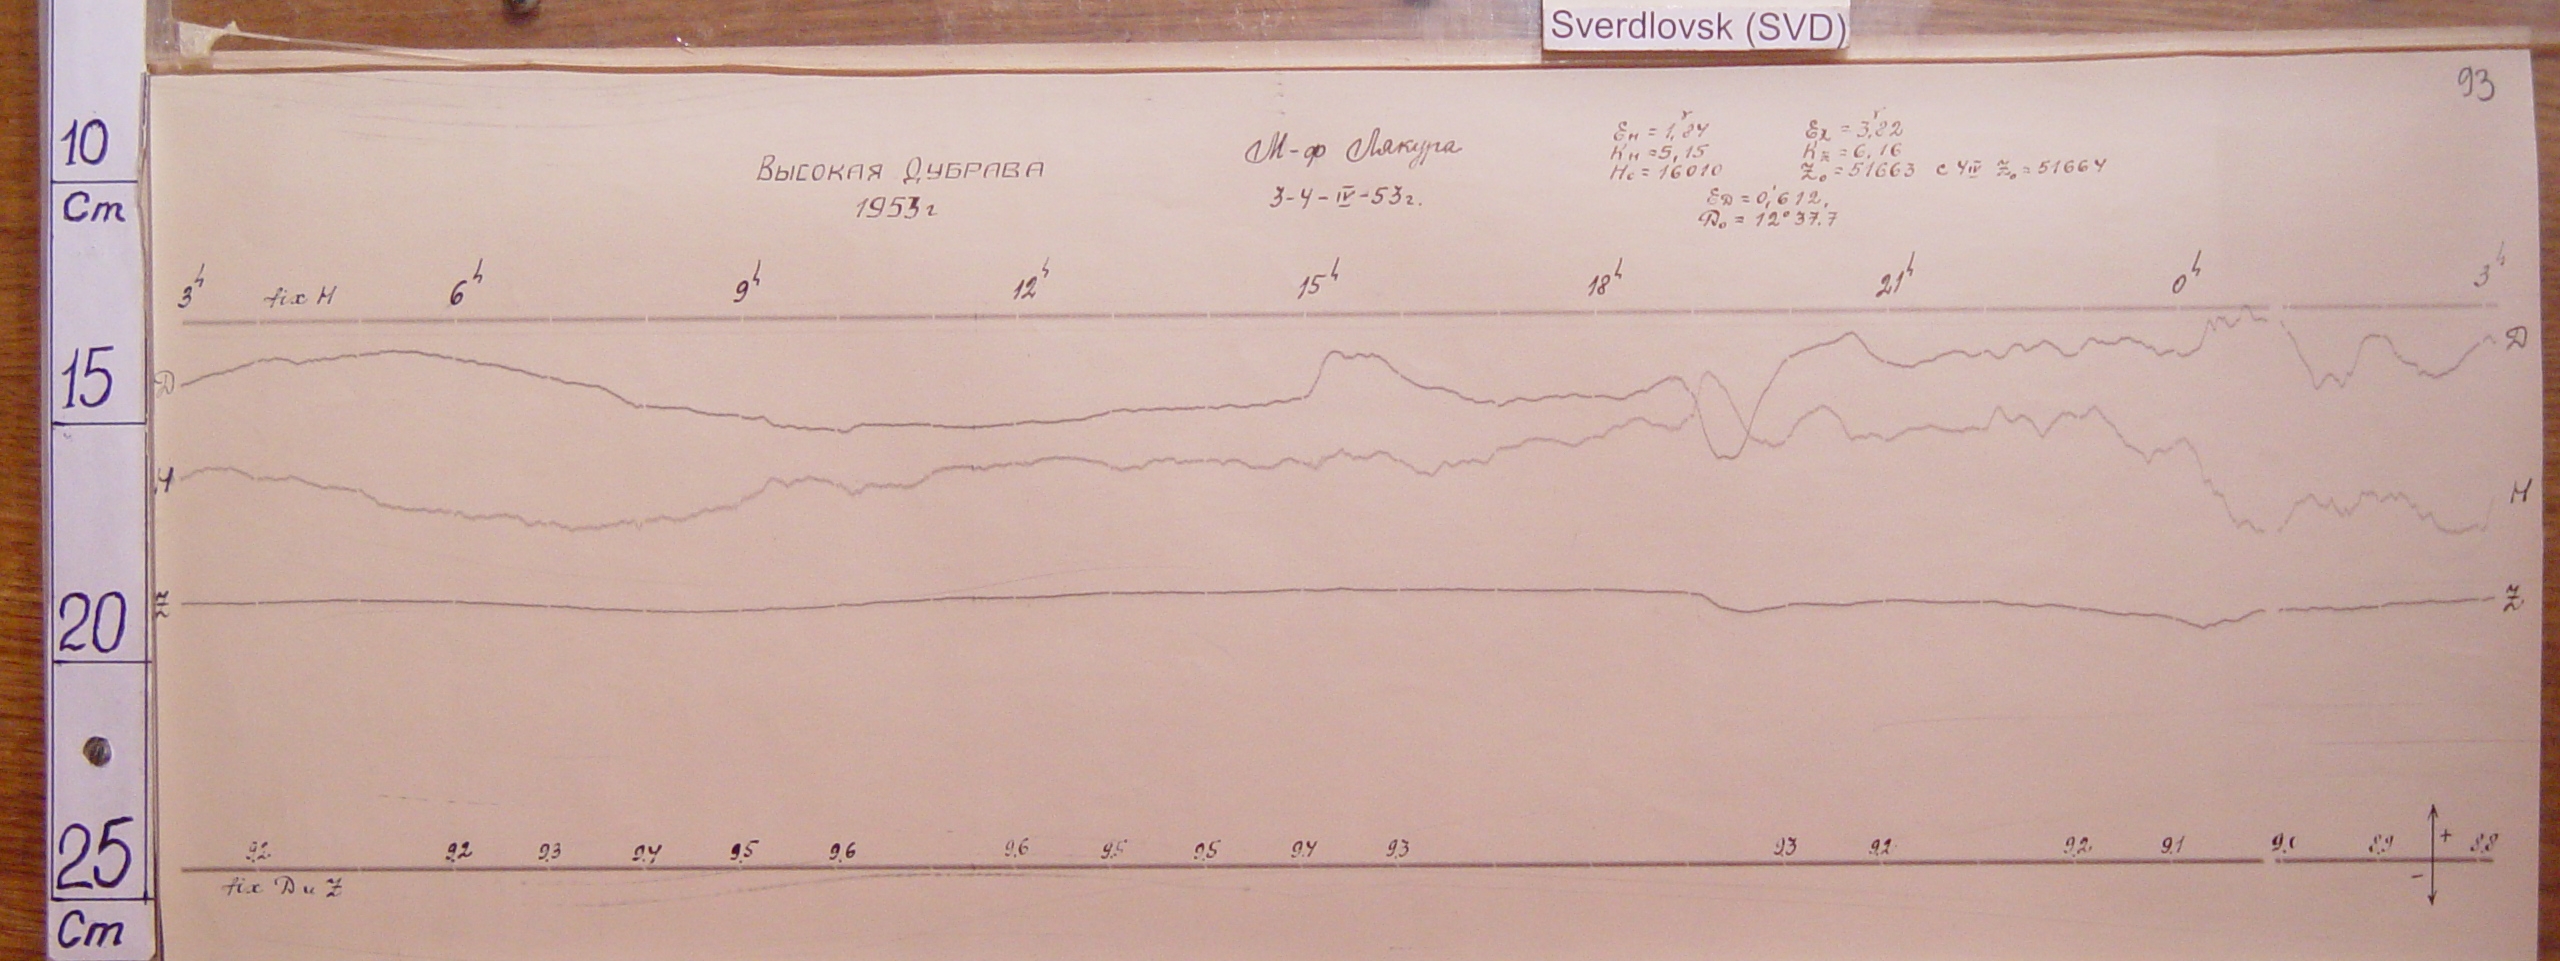 Sverdlovsk (SVD)
93
10
Cm
15
20
25
Cm
Высокая Дубрава
1953г
М-ф Лякура
3-4-IV-53г.
Ен = 1,84
Кн = 5,15
Но = 16010
Ez = 3,22
Kz = 6,16
Z₀ = 51663 с 4IV Z₀ = 51664
ED = 0,'612,
D₀ = 12°37.7
3ʰ fix H 6ʰ 9ʰ 12ʰ 15ʰ 18ʰ 21ʰ 0ʰ 3ʰ
D D
H H
Z Z
9.2 9.2 9.3 9.4 9.5 9.6 9.6 9.5 9.5 9.4 9.3 9.3 9.2 9.2 9.1 9.0 8.9 8.8
+
-
fix D и Z